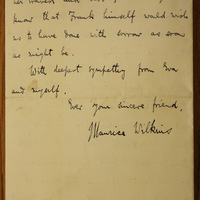 know that Frank himself would wish
us to have done with sorrow as soon
as might be.
With deepest sympathy from Eva
and myself.
Ever your sincere friend,
Maurice Wilkins